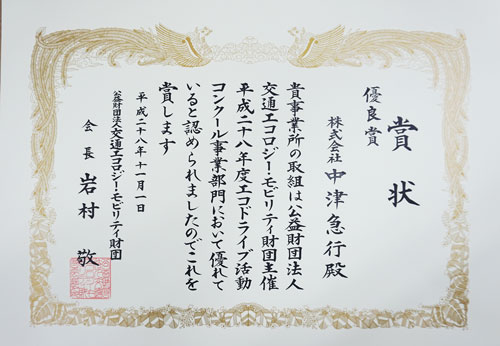 賞状
優良賞
株式会社 中津急行殿
貴事業所の取組は公益財団法人
交通エコロジー・モビリティ財団主催
平成二十八年度エコドライブ活動
コンクール事業部門において優れて
いると認められましたのでこれを
賞します
平成二十八年十一月一日
公益財団法人交通エコロジー・モビリティ財団
会長 岩村 敬